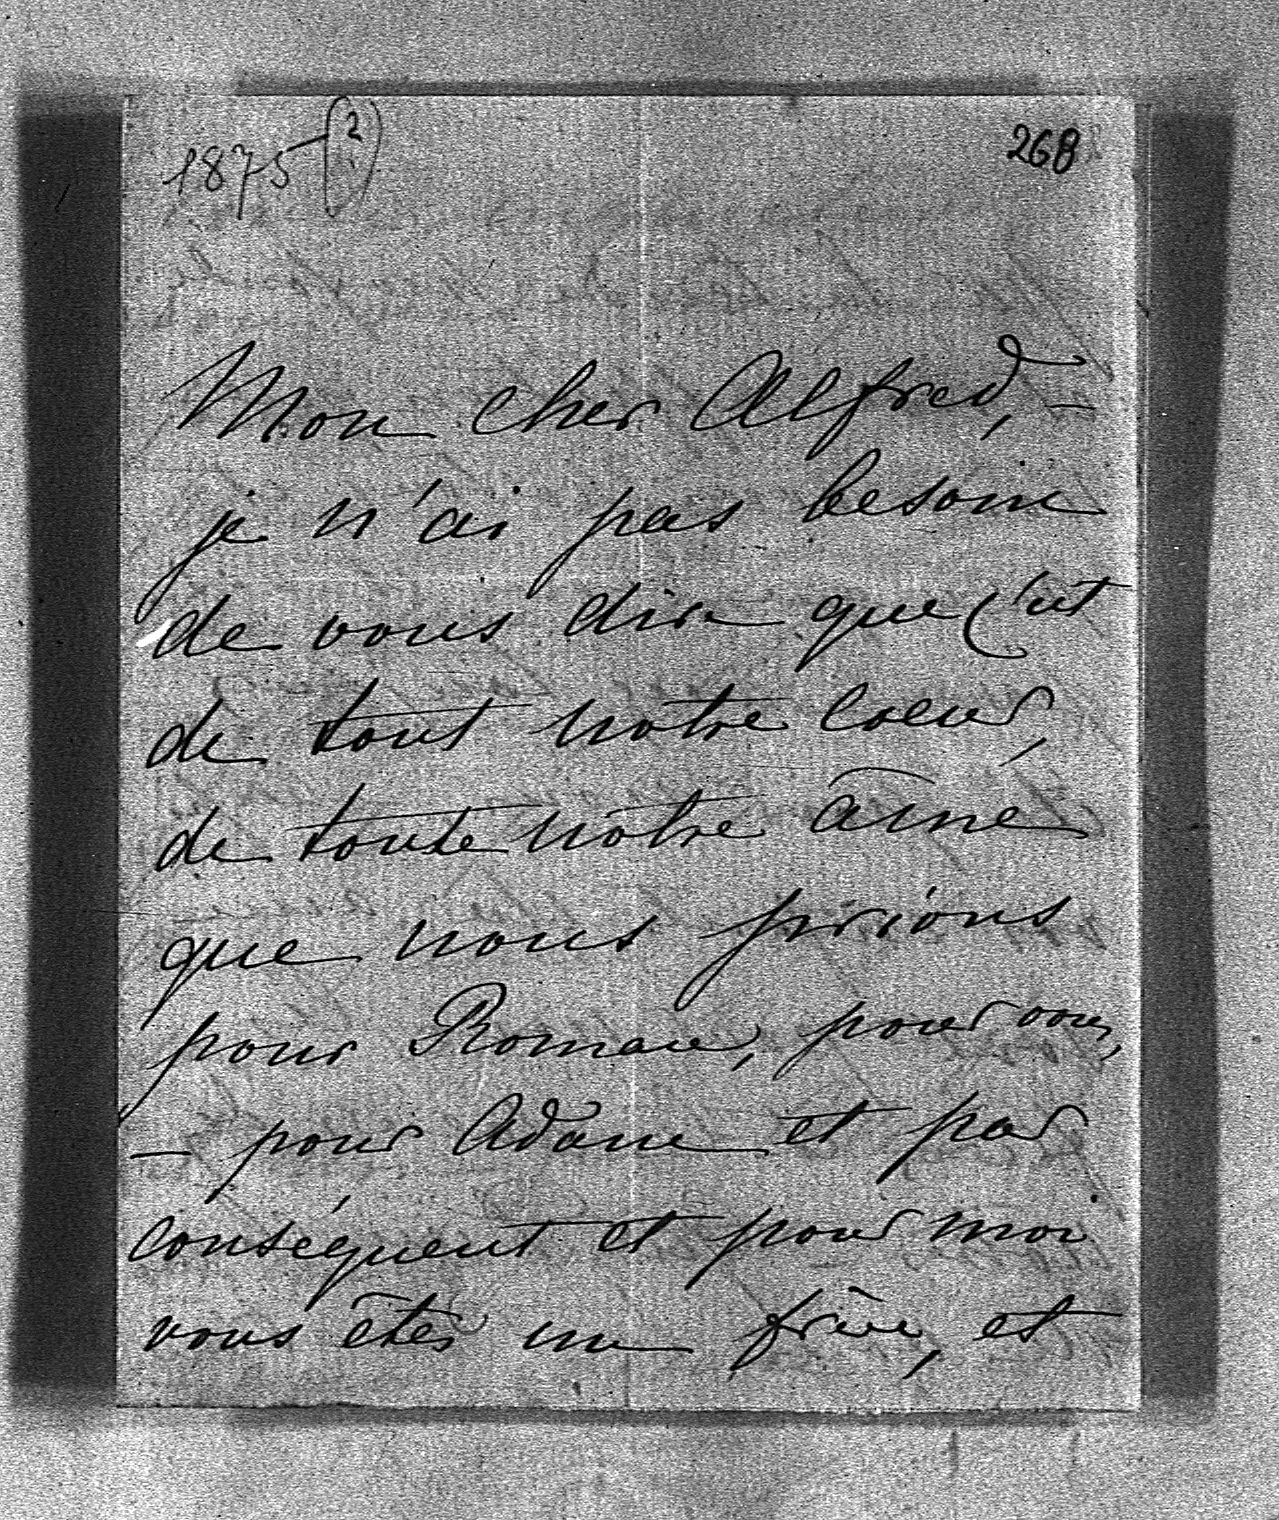 1875 (?)
268
Mon cher Alfred, –
je n'ai pas besoin
de vous dire que c'est
de tout notre coeur,
de toute notre âme
que nous prions
pour Roman, pour vous,
– pour Adam et par
conséquent et pour moi
vous êtes un frère, et